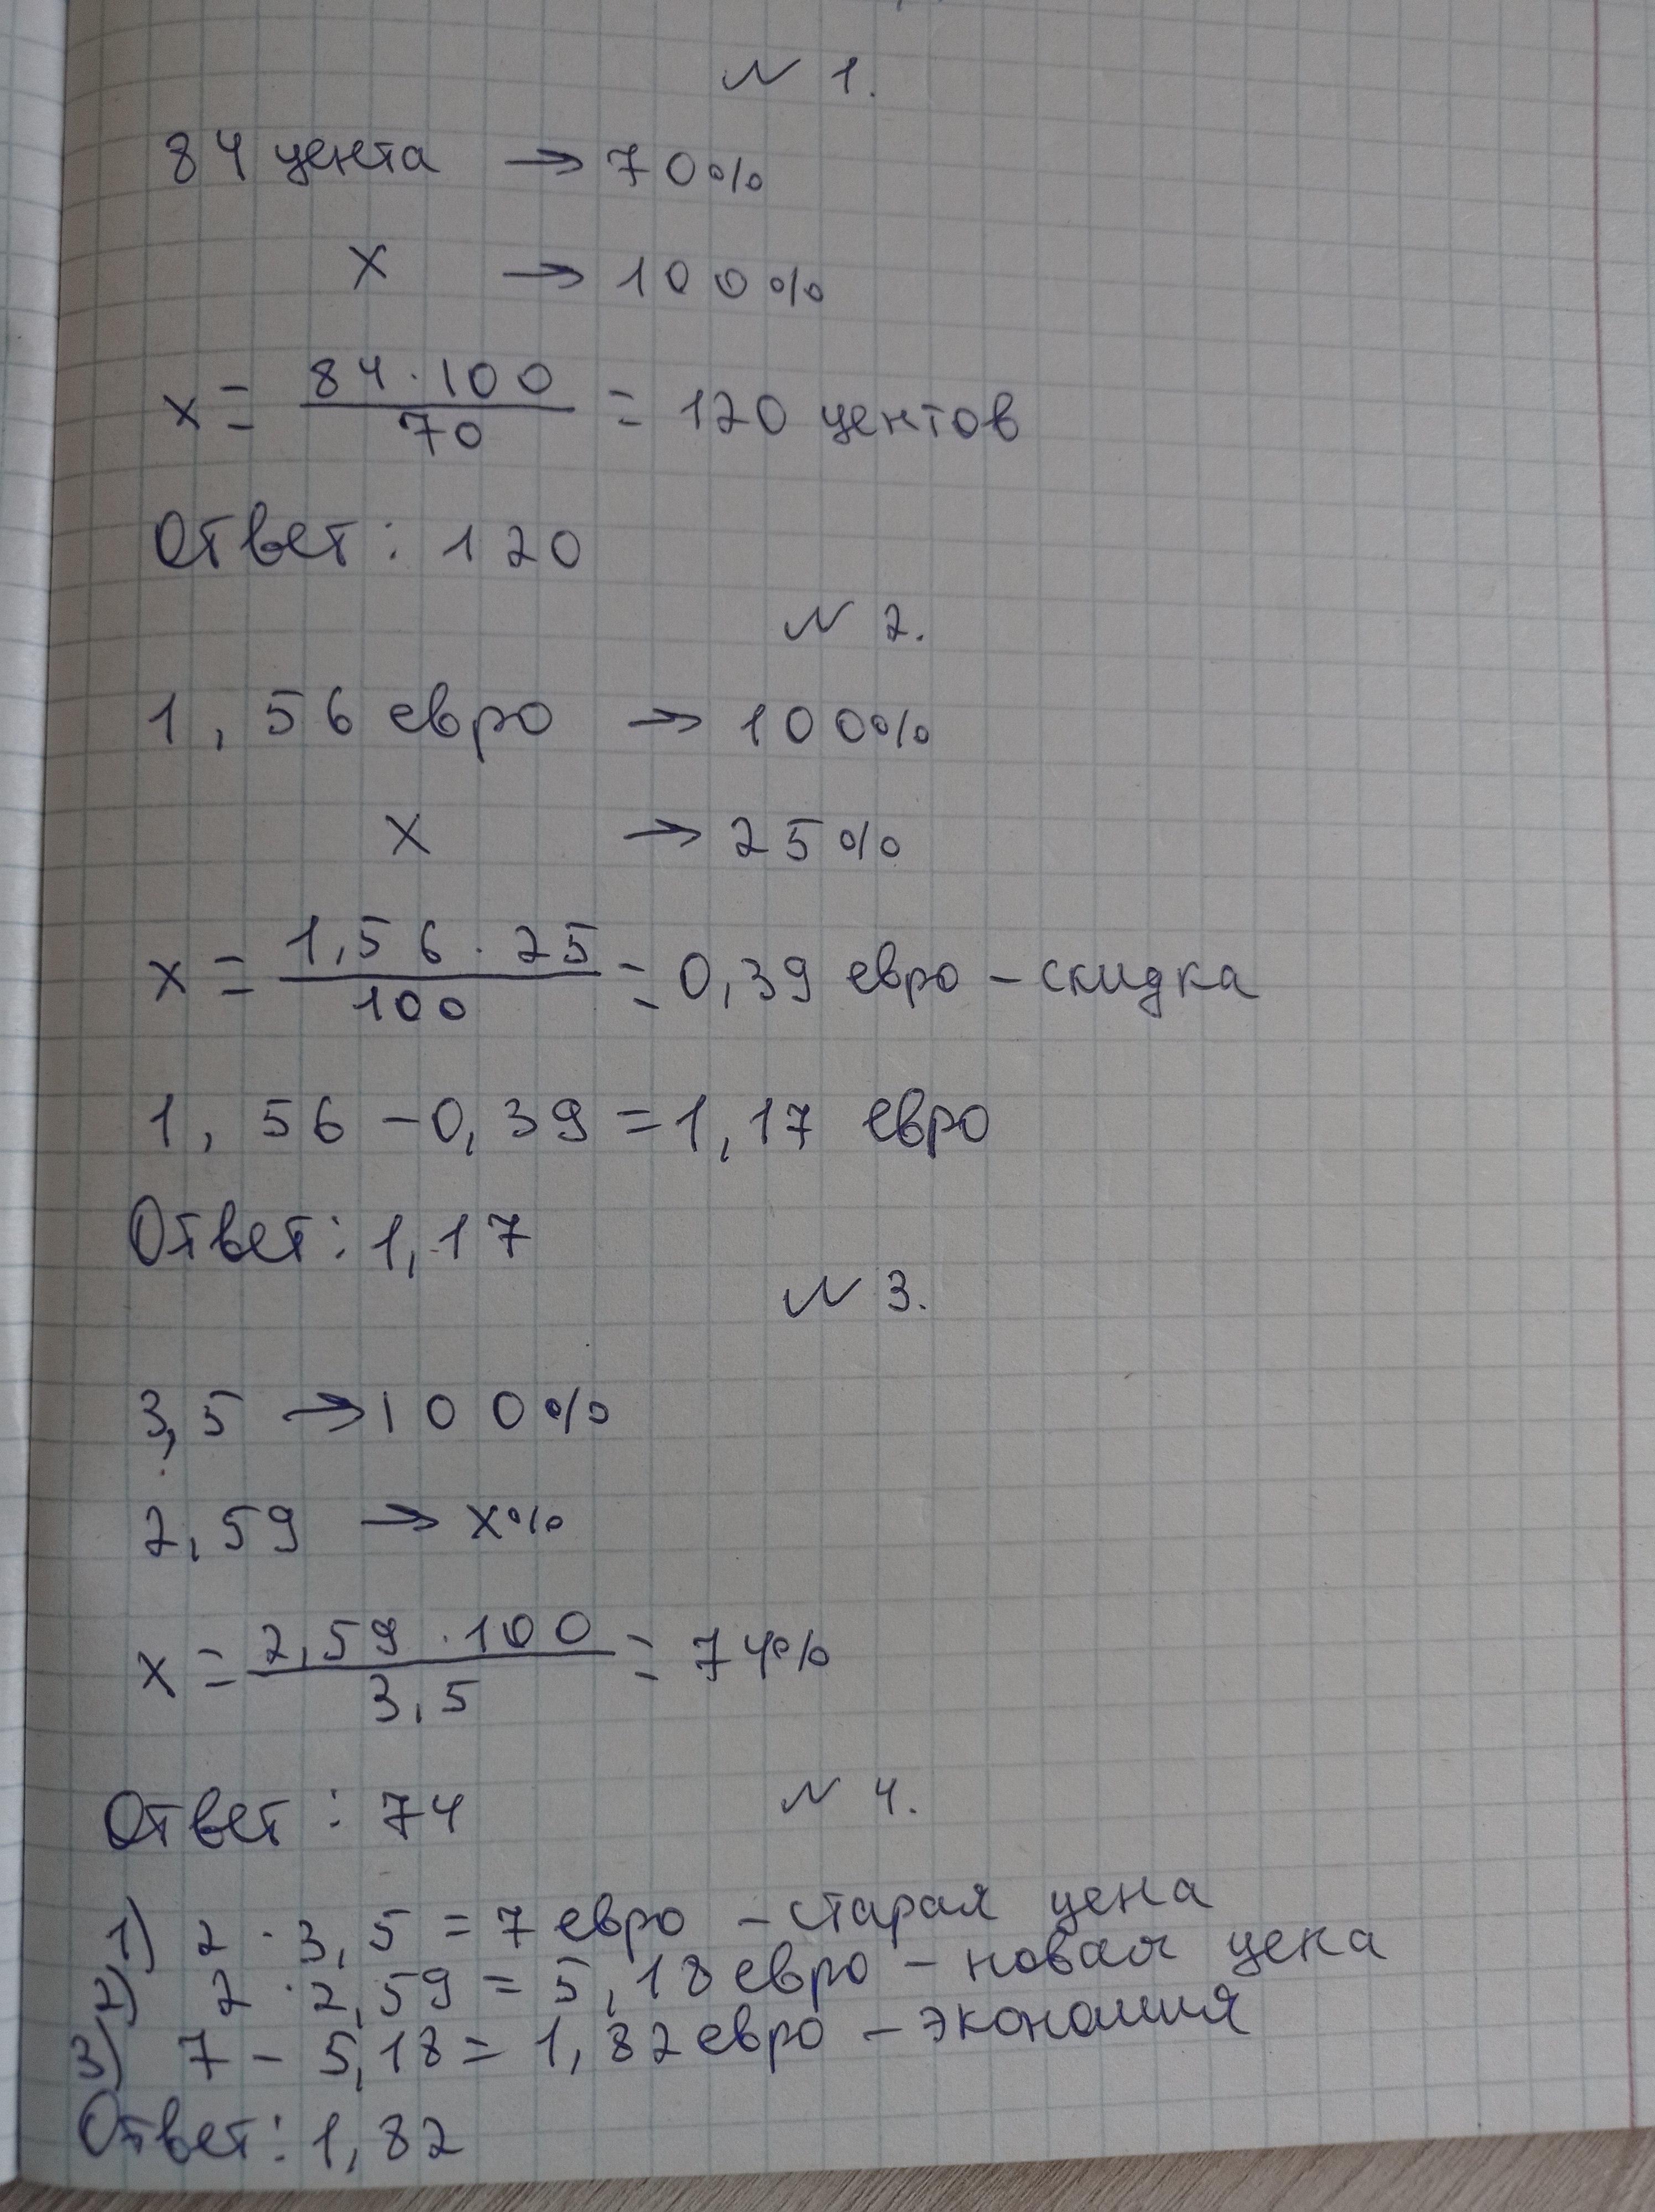 № 1.
84 цента → 70%
x → 100%
x = 84 · 100 / 70 = 120 центов
Ответ: 120
№ 2.
1,56 евро → 100%
x → 25%
x = 1,56 · 25 / 100 = 0,39 евро – скидка
1,56 – 0,39 = 1,17 евро
Ответ: 1,17
№ 3.
3,5 → 100%
2,59 → x%
x = 2,59 · 100 / 3,5 = 74%
Ответ: 74
№ 4.
1) 2 · 3,5 = 7 евро – старая цена
2) 2 · 2,59 = 5,18 евро – новая цена
3) 7 – 5,18 = 1,82 евро – экономия
Ответ: 1,82